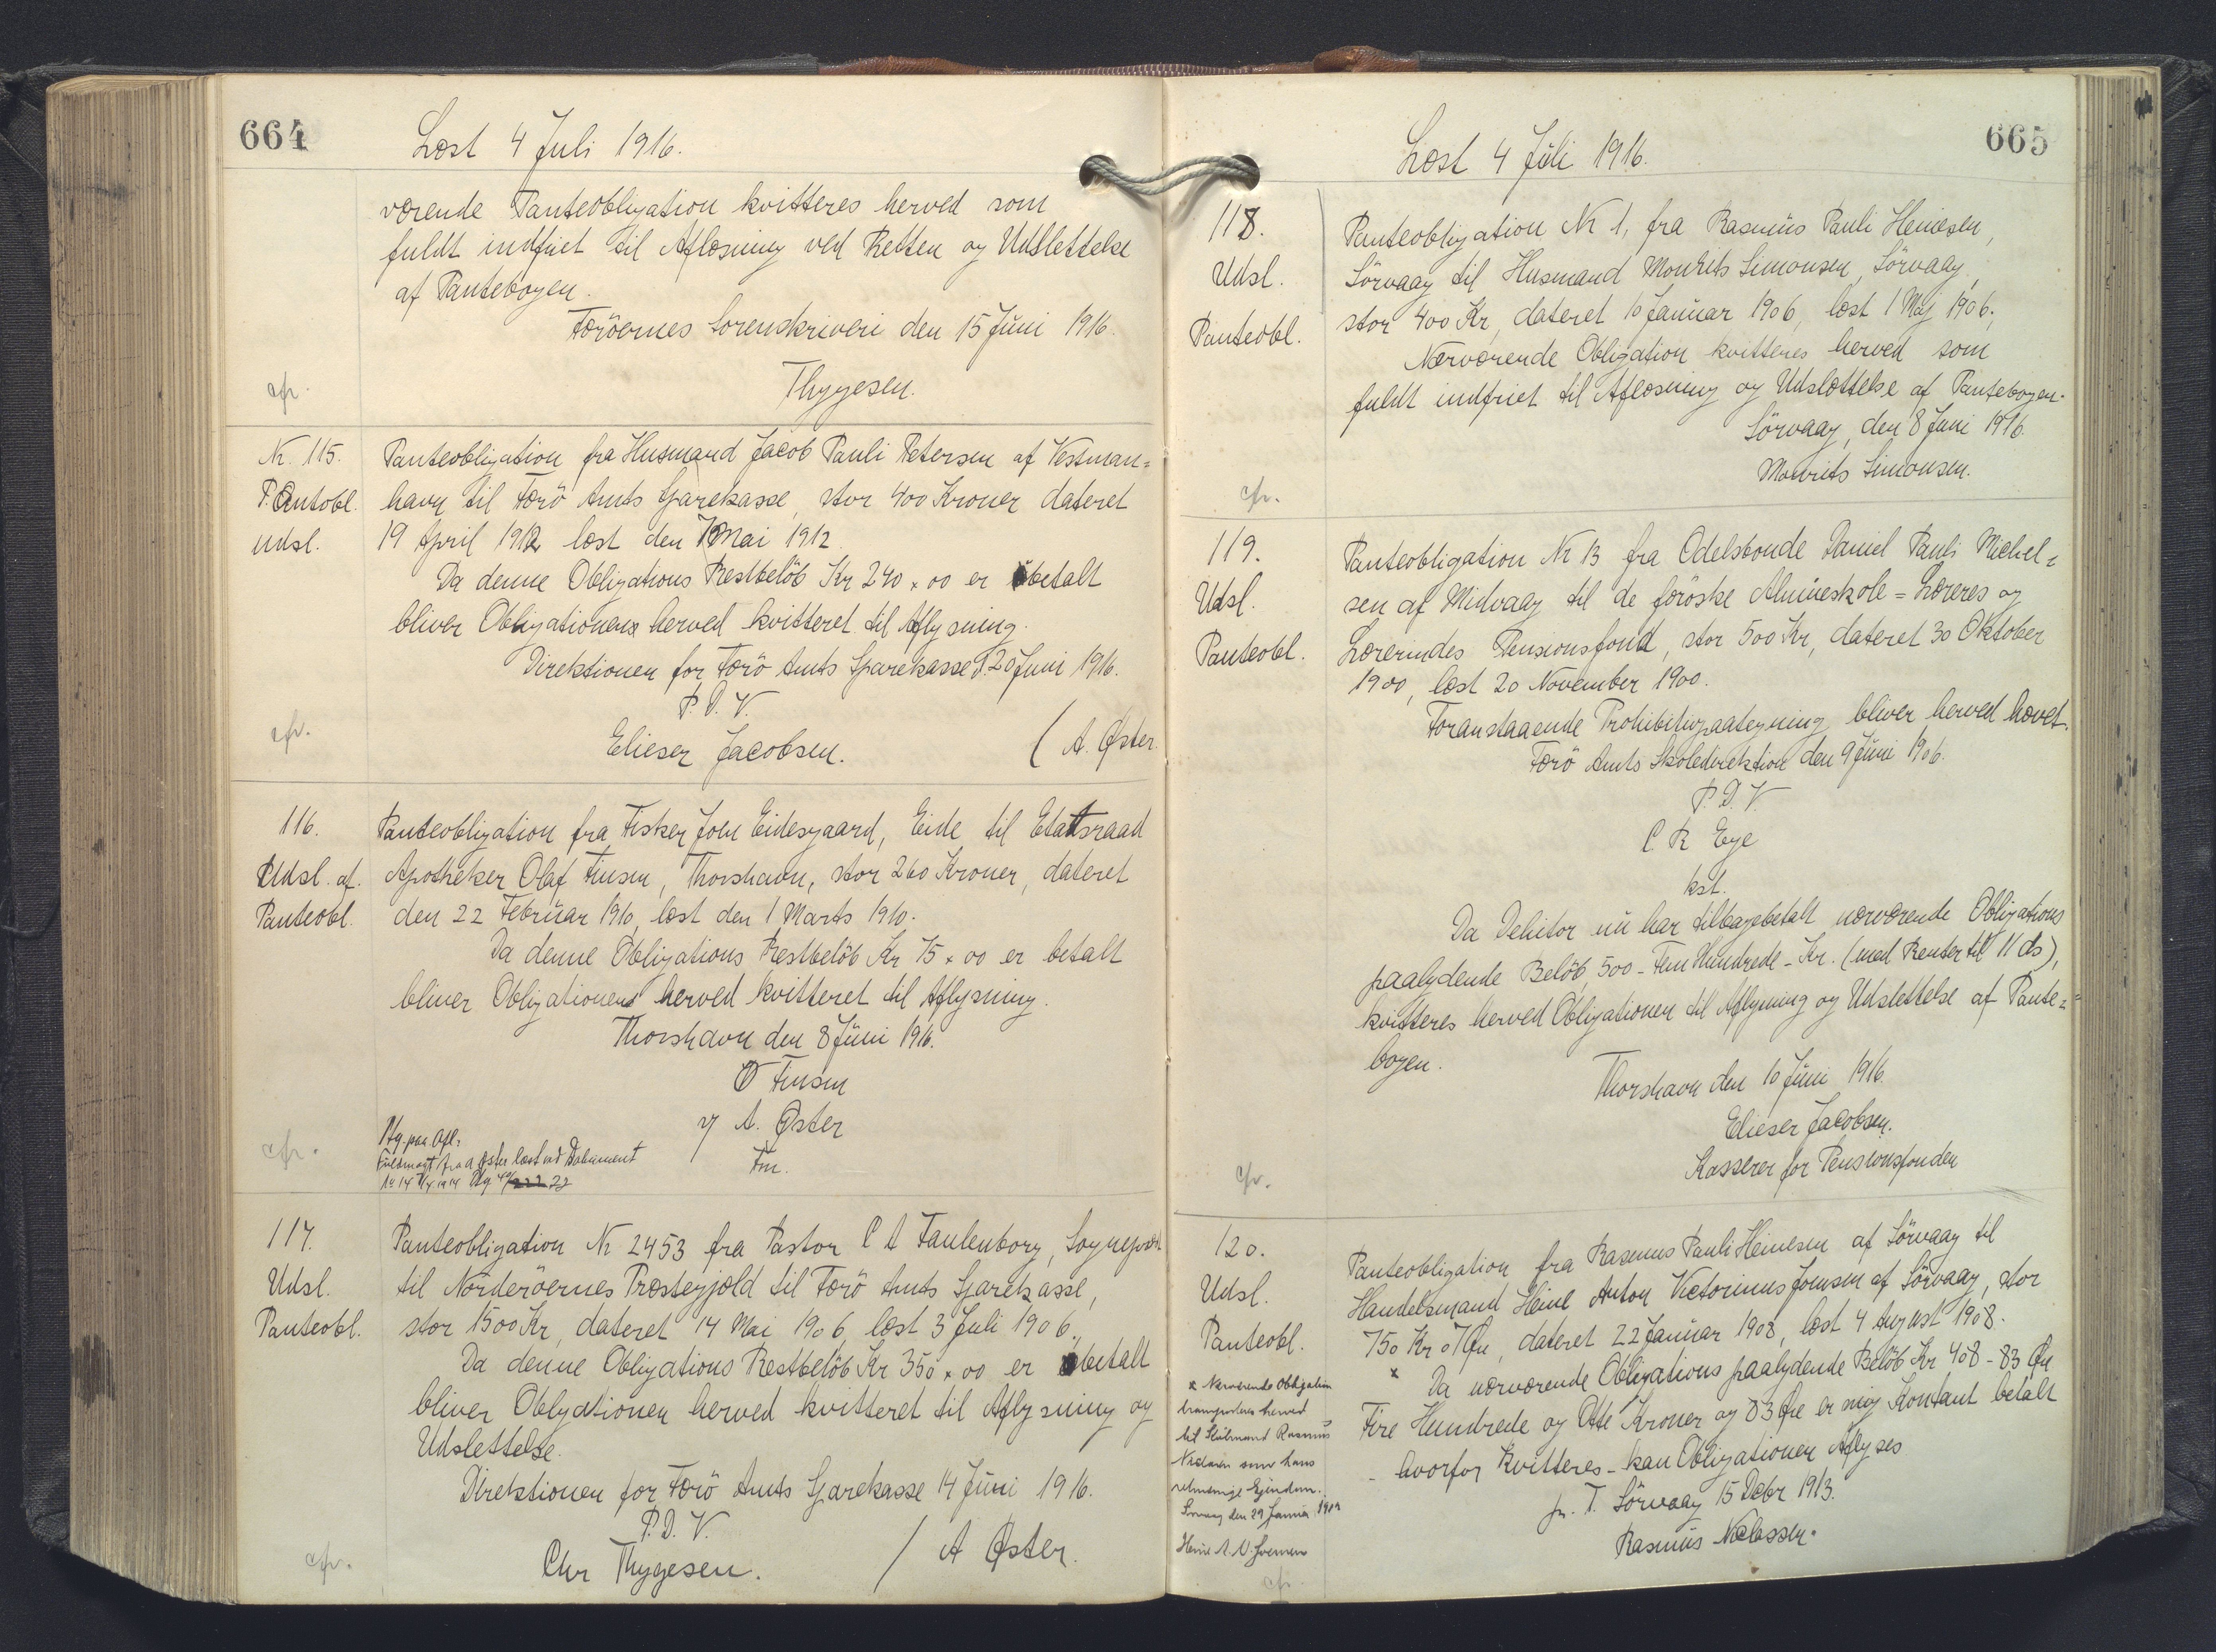 664
Læst 4 Juli 1916.
værende Panteobligation kvitteres herved som
fuldt indfriet til Aflæsning ved Retten og Udslettelse
af Pantebogen.
Færöernes Sorenskriveri den 15 Juni 1916.
Thygesen.
cfr.
Nr. 115.
Pantobl.
Udsl.
Panteobligation fra Husmand Jacob Pauli Petersen af Vestman=
havn til Færö Amts Sparekasse, stor 400 Kroner dateret
19 April 1912 læst den Mai 1912
Da denne Obligations Restbelöb Kr 240 x 00 er betalt
bliver Obligationen herved kvitteret til Aflysning.
Direktionen for Færö Amts Sparekasse d. 20 Juni 1916.
P. D. V.
Elieser Jacobsen. ( A. Øster.
cfr.
116.
Udsl. af.
Panteobl.
Panteobligation fra Fisker Joen Eidesgaard, Eide til Etatsraad
Apotheker Olaf Finsen, Thorshavn, stor 260 Kroner, dateret
den 22 Februar 1910, læst den 1 Marts 1910.
Da denne Obligations Restbelöb Kr 75 x 00 er betalt
bliver Obligationen herved kvitteret til Aflysning.
Thorshavn den 8 Juni 1916.
O Finsen
v/ A. Øster
Fm.
Ptg. paa Afl:
Fuldmagt fra A Øster læst ved Dokument
No 14 1914
cfr.
117.
Udsl.
Panteobl.
Panteobligation Nr 2453 fra Pastor C A Faulenborg, Sognepræst
til Norderöernes Præstegjæld til Færö Amts Sparekasse,
stor 1500 Kr, dateret 14 Mai 1906, læst 3 Juli 1906.
Da denne Obligations Restbelöb Kr 350 x 00 er betalt
bliver Obligationen herved kvitteret til Aflysning og
Udslettelse.
Direktionen for Færö Amts Sparekasse 14 Juni 1916.
P. D. V.
Chr Thygesen. / A Øster.
cfr.
665
Læst 4 Juli 1916.
118.
Udsl.
Panteobl.
Panteobligation Nr 1, fra Rasmus Pauli Heinesen,
Sörvaag til Husmand Mourits Simonsen, Sörvaag,
stor 400 Kr, dateret 10 Januar 1906, læst 1 Maj 1906.
Nærværende Obligation kvitteres herved som
fuldt indfriet til Aflæsning og Udslettelse af Pantebogen.
Sörvaag, den 8 Juni 1916.
Mourits Simonsen.
cfr.
119.
Udsl.
Panteobl.
Panteobligation Nr 13 fra Odelsbonde Daniel Pauli Michel=
sen af Midvaag til de færöske Almueskole=Læreres og
Lærerindes Pensionsfond, stor 500 Kr, dateret 30 Oktober
1900, læst 20 November 1900.
Foranstaaende Prohibitivpaategning bliver herved hævet.
Færö Amts Skoledirektion den 9 Juni 1906.
P. D. V.
C R Eye
kst.
Da Debitor nu har tilbagebetalt nærværende Obligations
paalydende Belöb, 500 - Fem Hundrede - Kr. (med Renter til 11 ds),
kvitteres herved Obligationen til Aflysning og Udslettelse af Pante=
bogen.
Thorshavn den 10 Juni 1916.
Elieser Jacobsen.
Kasserer for Pensionsfonden
cfr.
120.
Udsl.
Panteobl.
Panteobligation fra Rasmus Pauli Heinesen af Sörvaag til
Handelsmand Heine Anton Victorinus Joensen af Sörvaag, stor
750 Kr 07 Øre, dateret 22 Januar 1908, læst 4 August 1908.
x Da nærværende Obligations paalydende Belöb Kr 408 - 83 Øre
Fire Hundrede og Otte Kroner og 83 Øre er mig Kontant betalt
- hvorfor Kvitteres - kan Obligationen Aflyses
p. T. Sörvaag 15 Debr 1913.
Rasmus Nielassen.
x Nærværende Obligation
transporteres herved
til Rasmus
som hans
retmæssige Ejendom.
Sörvaag den 29 Januar 1909
Heine A. V. Joensen
cfr.